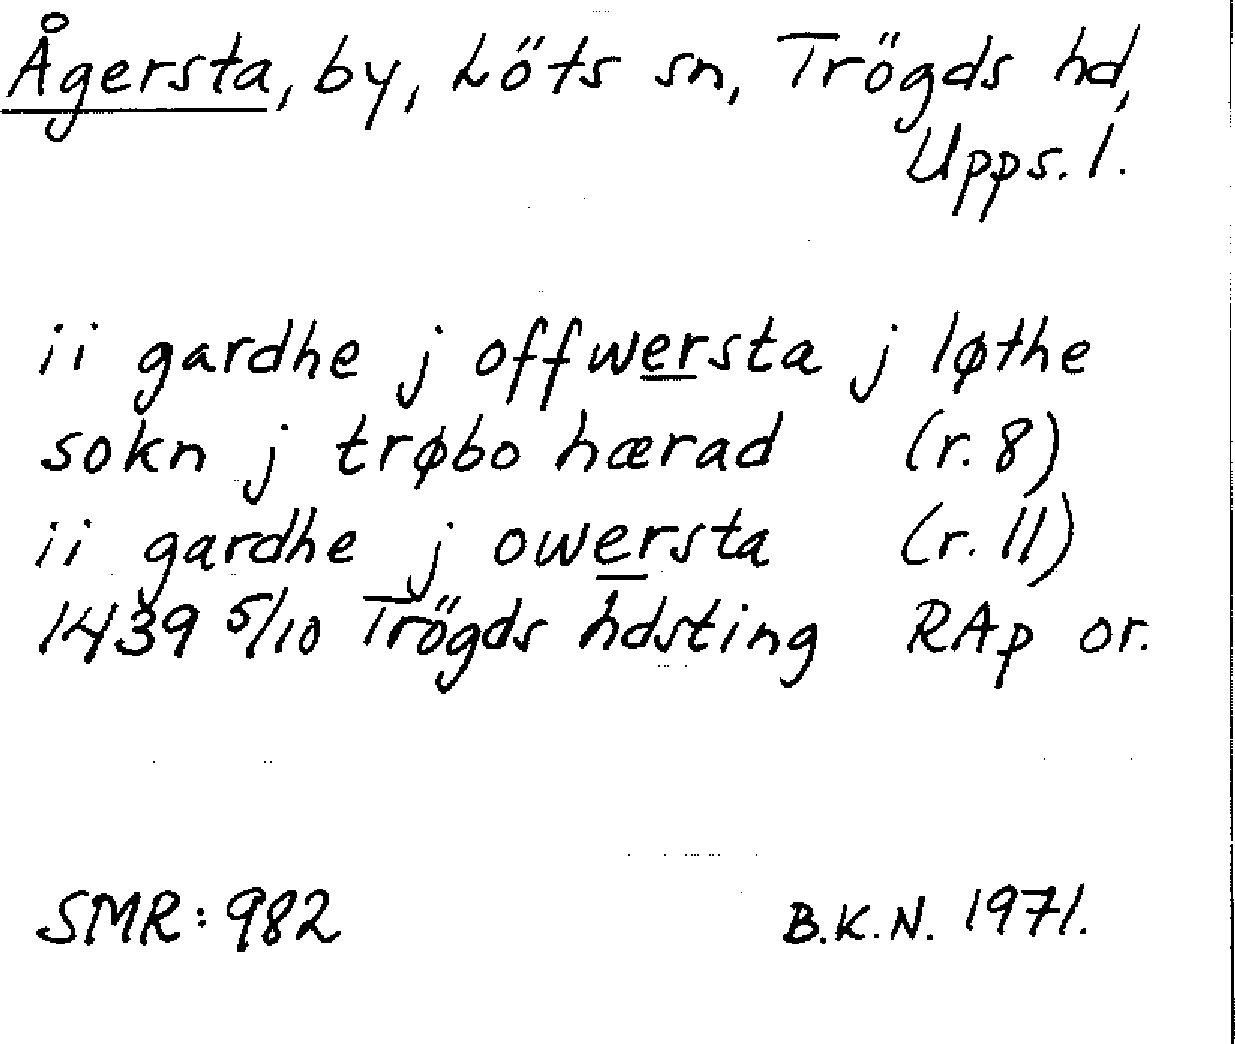 Ågersta, by, Löts sn, Trögds hd,
Upps. l.
ii gardhe j offwersta j løthe
sokn j trøbo hærad (r. 8)
ii gardhe j owersta (r. 11)
1439 5/10 Trögds hdsting RAp or.
SMR: 982 B.K.N. 1971.